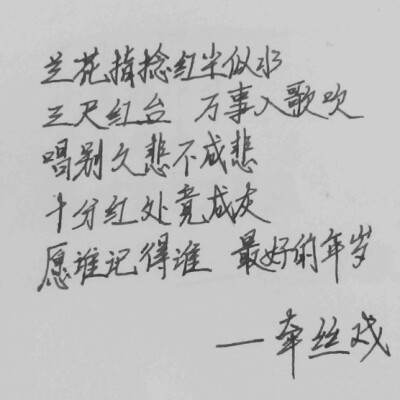 兰花指捻红尘似水
三尺红台 万事入歌吹
唱别久悲不成悲
十分红处竟成灰
愿谁记得谁 最好的年岁
—牵丝戏